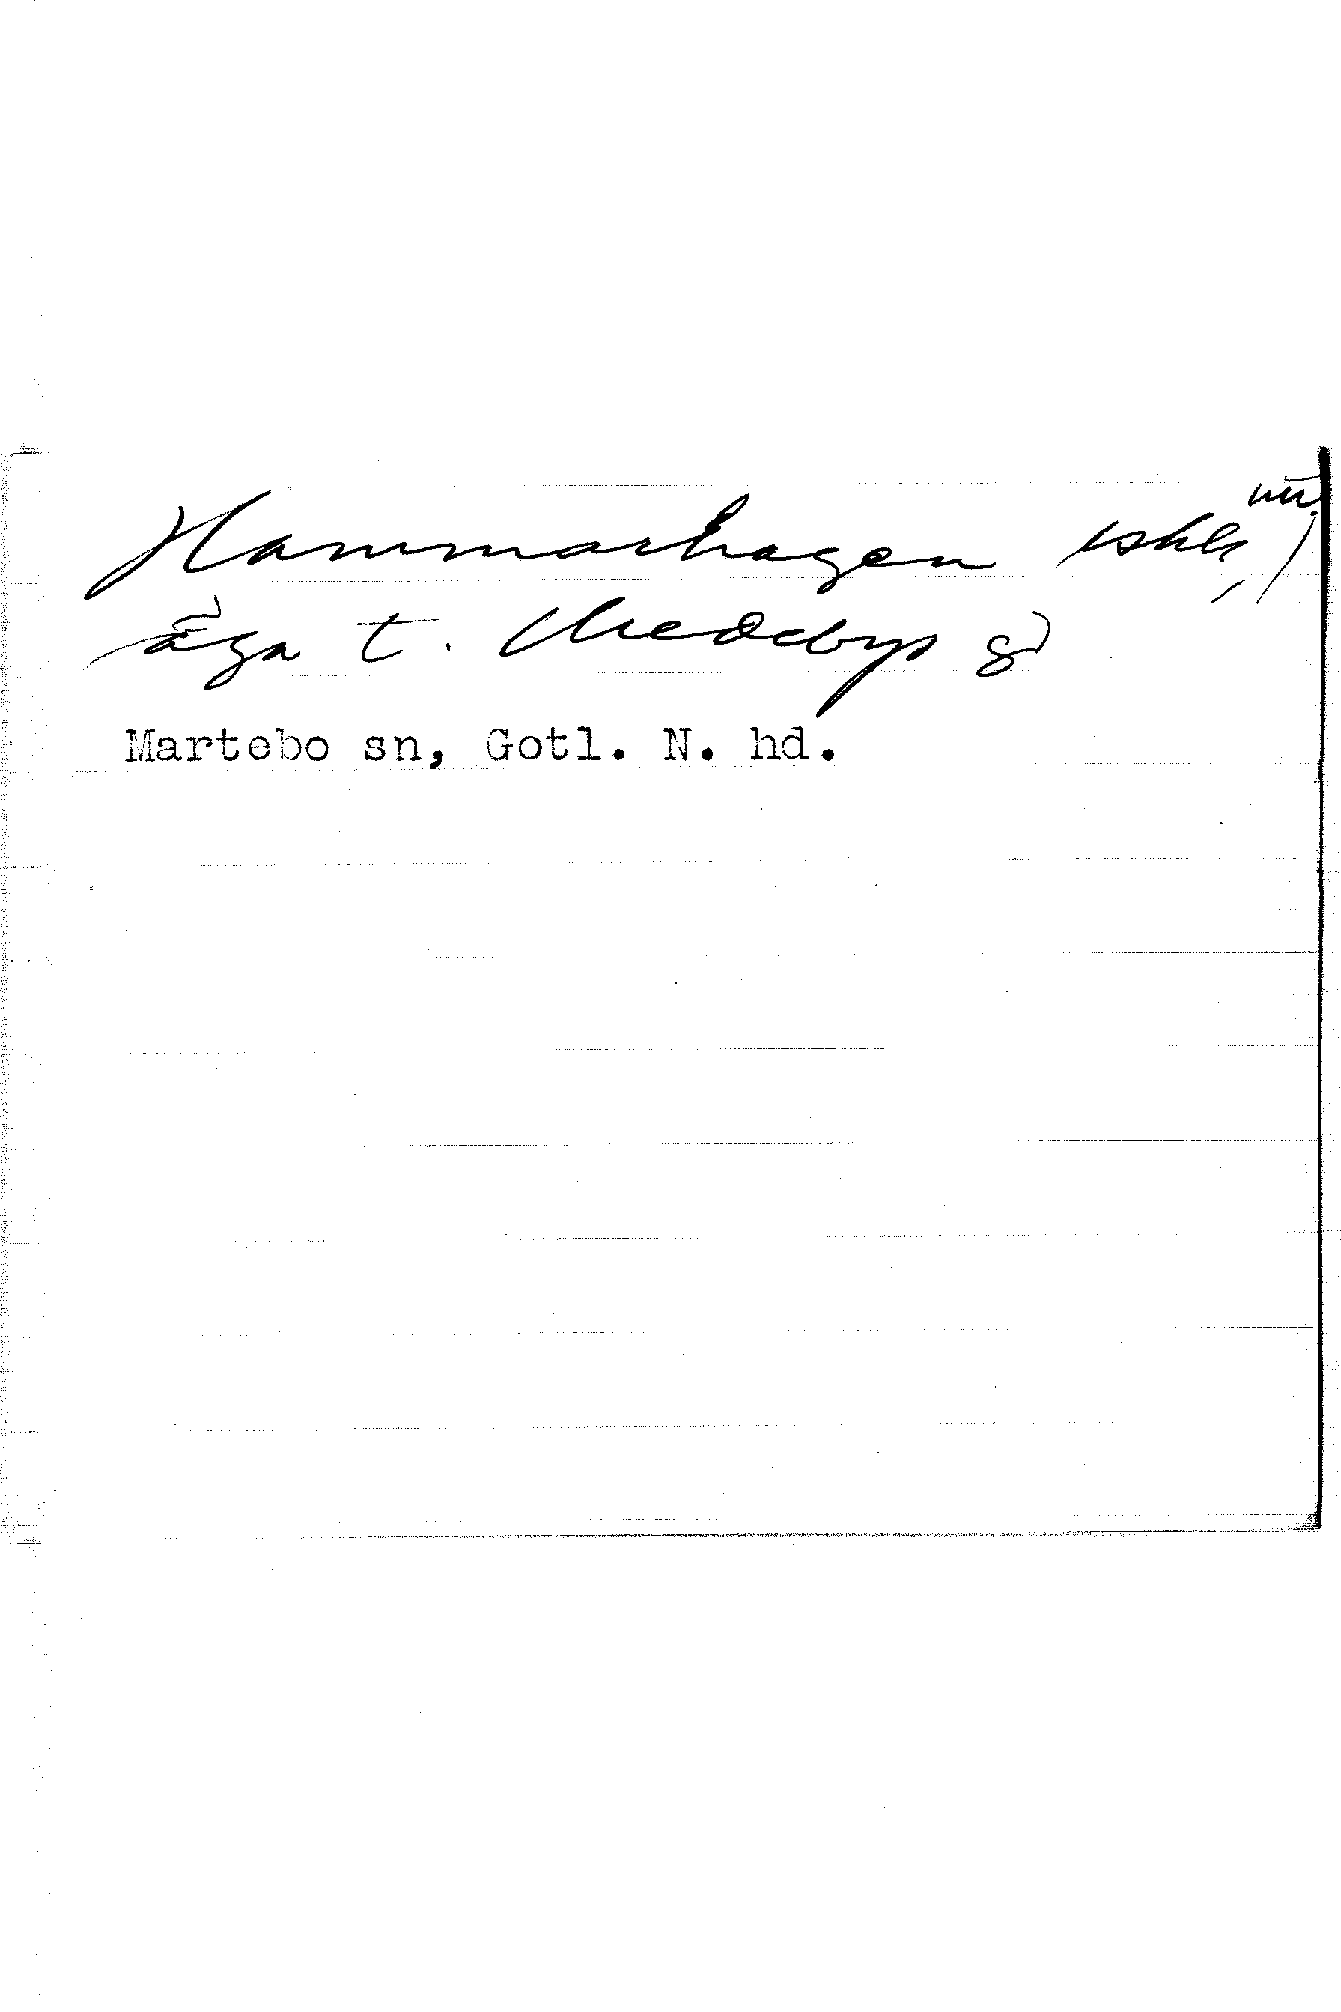 Hammarhagen
äga t. Medebys g)
Martebo sn, Gotl. N. hd.